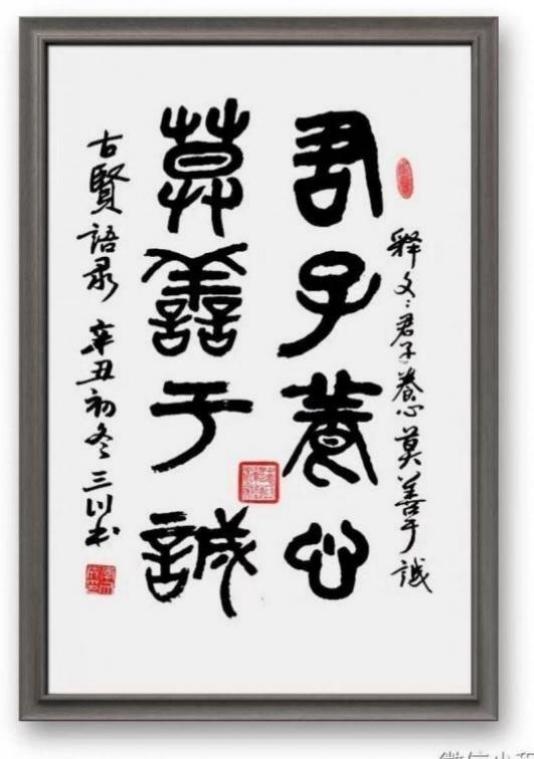 釋文:君子養心莫善于誠
君子養心
莫善于誠
古賢語录 辛丑初冬 三川书